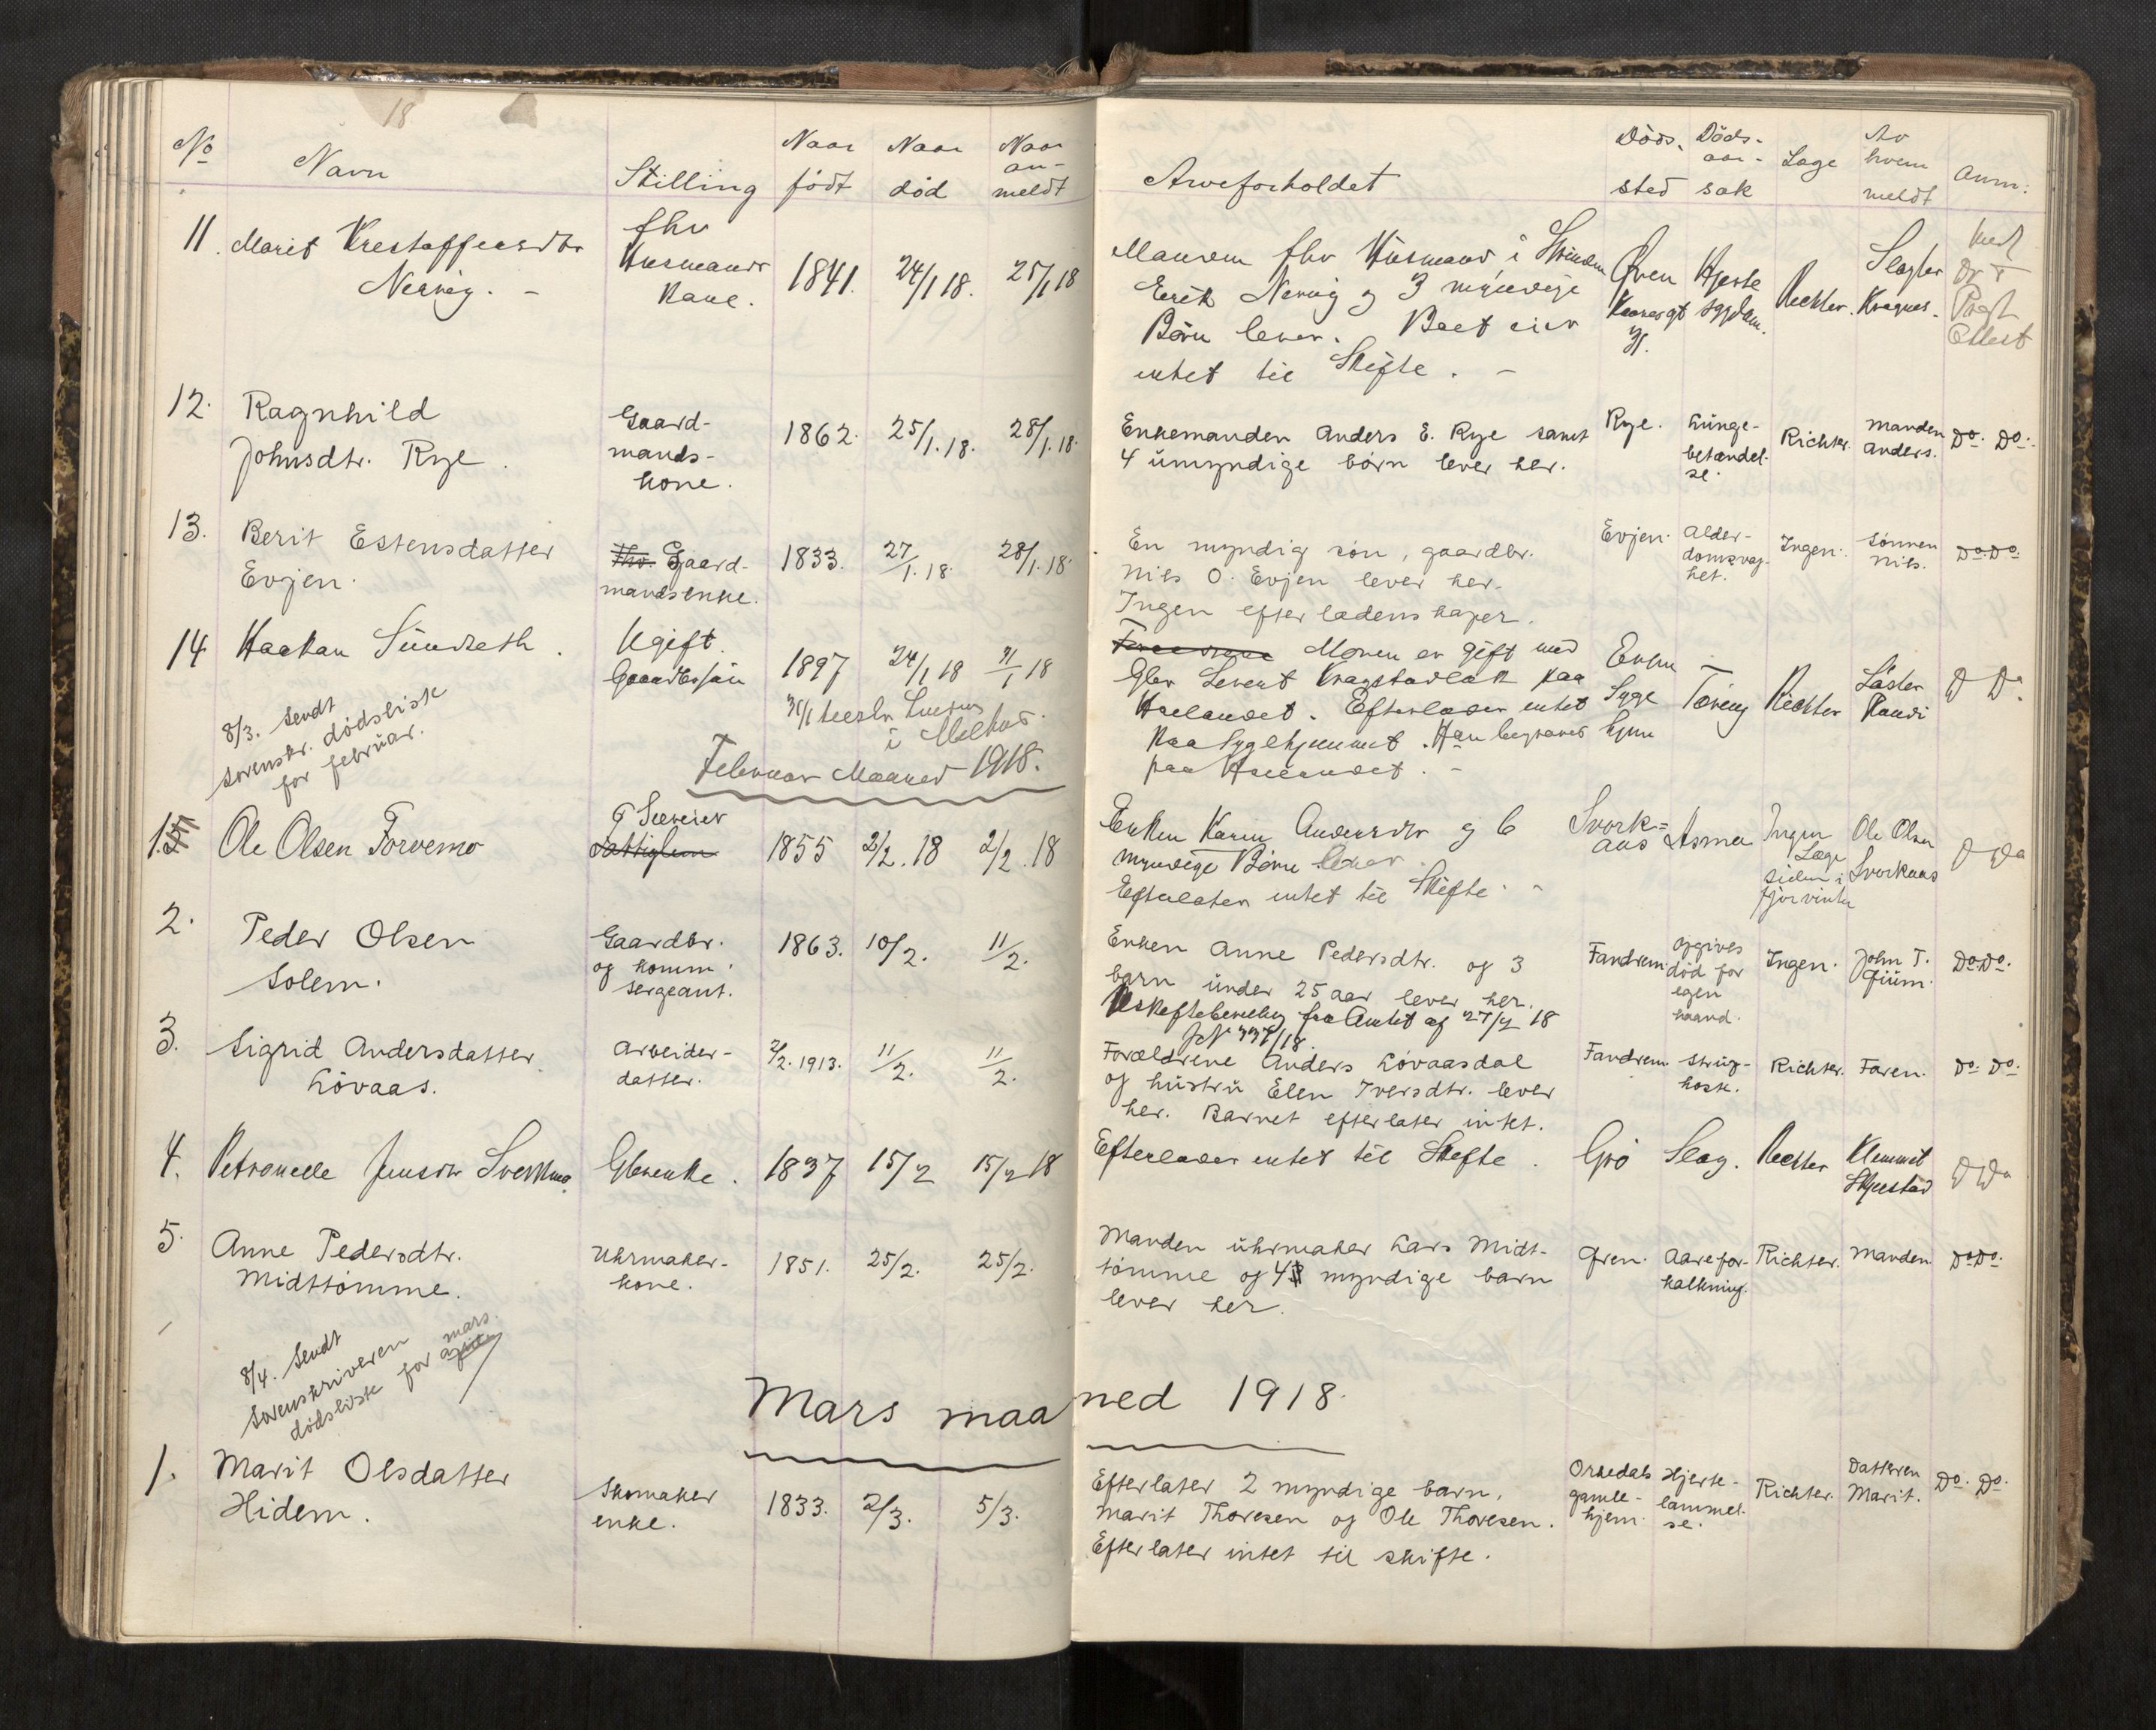 18
No Navn Stilling Naar født Naar død Naar an- meldt Arveforholdet Døds- sted Døds- aar- sak Læge Av hvem meldt Anm:
11. Marit Kristoffersdtr Nervig. – fhv Husmands Kone. 1841. 24/1 18. 25/1 18
Manden fhv Husmand i
Erik Nervig og 3 myndige
Børn lever. Boet eier
intet til Skifte. –
Hjerte sygdom. Richter. Kragnes.
Attest
12. Ragnhild Johnsdtr. Rye. Gaard- mands- kone. 1862. 25/1. 18. 28/1. 18.
Enkemanden Anders E. Rye samt
4 umyndige børn lever her.
Rye. Lunge- betændel- se. Richter. Manden Anders. Do. Do.
13. Berit Estensdatter Evjen. Fhv. Gaard- mandsenke. 1833. 27/1. 18. 28/1. 18.
En myndig søn, gaardbr.
Nils O. Evjen lever her.
Ingen efterladenskaper.
Evjen. Alder- domsvag- het. Ingen. Sønnen Nils. Do. Do.
14 Haakan Sundseth. Ugift. Gaardbrsøn 1897 24/1 18 31/1 18
Moren er gift med
Gbr Kragstadløkk paa
Hoelandet. Efterlader intet
paa Sygehjemmet. Han begraves
paa Hoelandet. –
Syge hjem Tæring Richter Søster Randi D Do
8/3. Sendt
sorenskr. dødsliste
for februar.
31/1 i Melhus.
Februar Maaned 1918.
1. Ole Olsen Forvemo Lættighem 1855 2/2. 18 2/2. 18
Enken Karen Andersdtr og 6
myndige Børn lever.
Efterlater intet til Skifte. –
Svork- aas Asma Ingen Læge siden i fjor vinter Ole Olsen Svorkaas D Do
2. Peder Olsen Solem. Gaardbr. og komm. sergeant. 1863. 10/2. 11/2.
Enken Anne Pedersdtr. og 3
barn under 25 aar lever her.
Uskiftebevilling fra Amtet af 27/2 18
JN 337/18.
Fandrem. Opgives død for egen haand. Ingen. John T. Gjüm. Do. Do.
3. Sigrid Andersdatter Løvaas. Arbeider- datter. 2/2. 1913. 11/2. 11/2.
Forældrene Anders Løvaasdal
og hustru Elen Iversdtr. lever
her. Barnet efterlater intet.
Fandrem Strup- hoste. Richter. Faren. Do. Do.
4. Petronelle Jensdtr Svorkmo. Gbrenke. 1837 15/2 15/2 18
Efterlader intet til Skifte.
Gjø Slag. Richter Klemmet Skjestad D Do
5. Anne Pedersdtr. Midttømme. Uhrmaker- kone. 1851. 25/2. 25/2.
Manden uhrmaker Lars Midt-
tømme og 4 myndige barn
lever her.
Gren. Aarefor- kalkning. Richter. Manden. Do Do.
8/4. Sendt
sorenskriveren
dødsliste for april mars.
Mars maaned 1918.
1. Marit Olsdatter Hidem. Skomaker enke. 1833. 2/3. 5/3.
Efterlater 2 myndige barn,
Marit Thoresen og Ole Thoresen.
Efterlater intet til skifte.
Orkedals gamle- hjem. Hjerte- lammel- se. Richter. Datteren Marit. Do. Do.